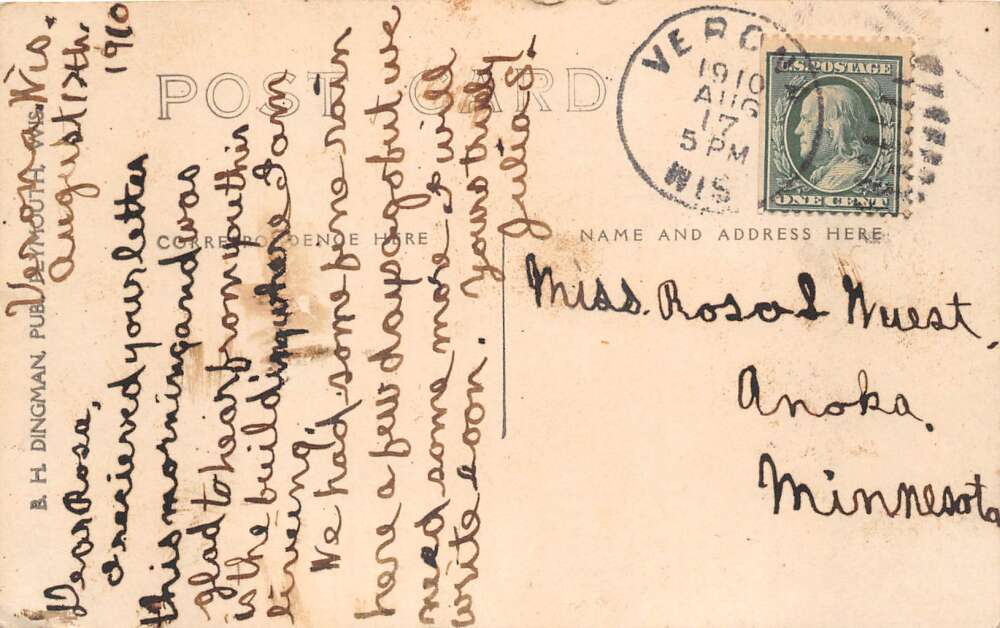 POST CARD
CORRESPONDENCE HERE
NAME AND ADDRESS HERE
B. H. DINGMAN, PUB. PLYMOUTH, WIS.
VERONA
1910
AUG
17
5 PM
WIS
U.S. POSTAGE
ONE CENT
Verona Wis.
August 17th.
1910
Dear Rosa,
I recieved your letter
this morning and was
glad to hear from you this
is the building where I am
liveing.
We had some fine rain
here a few days ago but we
need some more I will
write soon. yours truly
Julia S.
Miss. Rosa L Wuest,
Anoka,
Minnesota